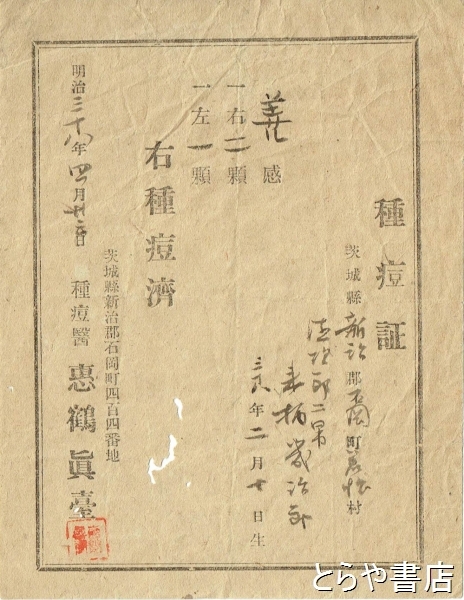 種痘証
茨城縣新治郡石岡町
村
二男
幾治郎
三八年二月十日生
善感
一右二顆
一左一顆
右種痘濟
明治三十八年四月廿日
茨城縣新治郡石岡町四百四番地
種痘醫 惠鶴眞臺
とらや書店